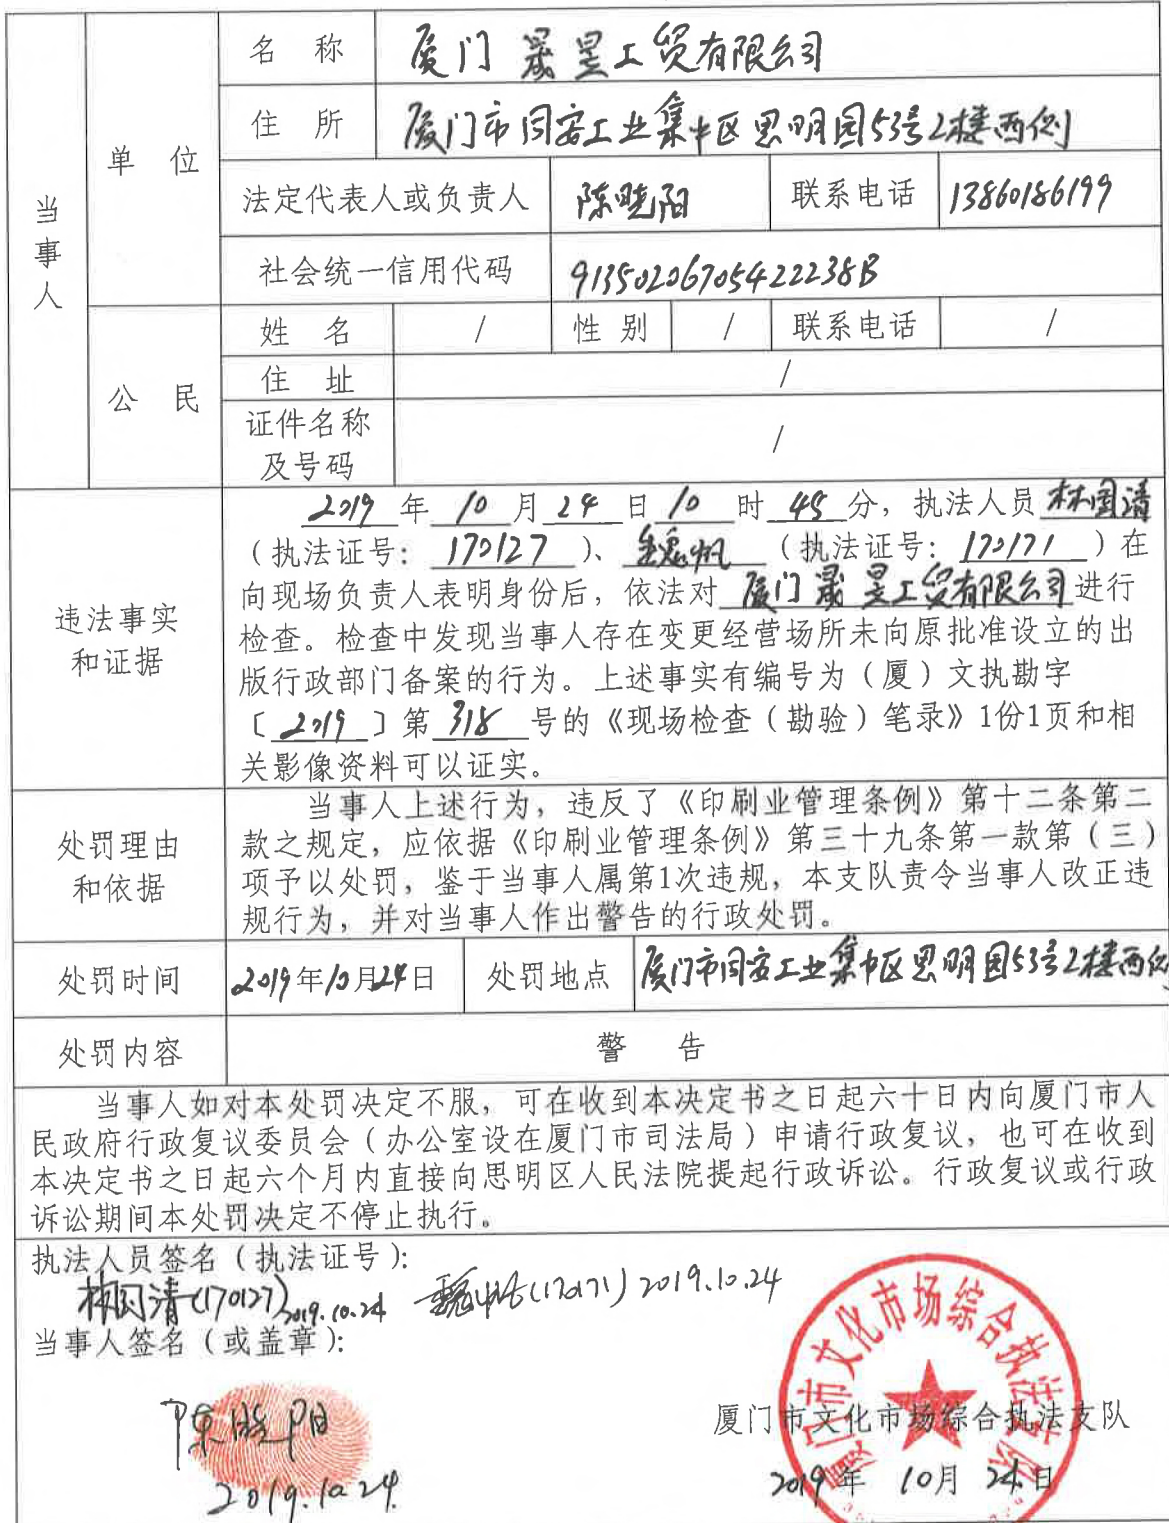 当事人
单 位
名 称 厦门晟昱工贸有限公司
住 所 厦门市同安工业集中区思明园53号2楼西侧
法定代表人或负责人 陈晓阳 联系电话 13860186199
社会统一信用代码 91350206705422238B
公 民
姓 名 / 性 别 / 联系电话 /
住 址 /
证件名称
及号码 /
违法事实
和证据
2019 年 10 月 24 日 10 时 45 分，执法人员 林国清
（执法证号： 170127 ）、 魏帆 （执法证号： 170171 ）在
向现场负责人表明身份后，依法对 厦门晟昱工贸有限公司 进行
检查。检查中发现当事人存在变更经营场所未向原批准设立的出
版行政部门备案的行为。上述事实有编号为（厦）文执勘字
〔 2019 〕第 318 号的《现场检查（勘验）笔录》1份1页和相
关影像资料可以证实。
处罚理由
和依据
当事人上述行为，违反了《印刷业管理条例》第十二条第二
款之规定，应依据《印刷业管理条例》第三十九条第一款第（三）
项予以处罚，鉴于当事人属第1次违规，本支队责令当事人改正违
规行为，并对当事人作出警告的行政处罚。
处罚时间 2019年10月24日 处罚地点 厦门市同安工业集中区思明园53号2楼西侧
处罚内容 警 告
当事人如对本处罚决定不服，可在收到本决定书之日起六十日内向厦门市人
民政府行政复议委员会（办公室设在厦门市司法局）申请行政复议，也可在收到
本决定书之日起六个月内直接向思明区人民法院提起行政诉讼。行政复议或行政
诉讼期间本处罚决定不停止执行。
执法人员签名（执法证号）：
林国清(170127) 2019.10.24 魏帆(170171) 2019.10.24
当事人签名（或盖章）：
陈晓阳
2019.10.24
厦门市文化市场综合执法支队
厦门市文化市场综合执法支队
2019 年 10月 24日